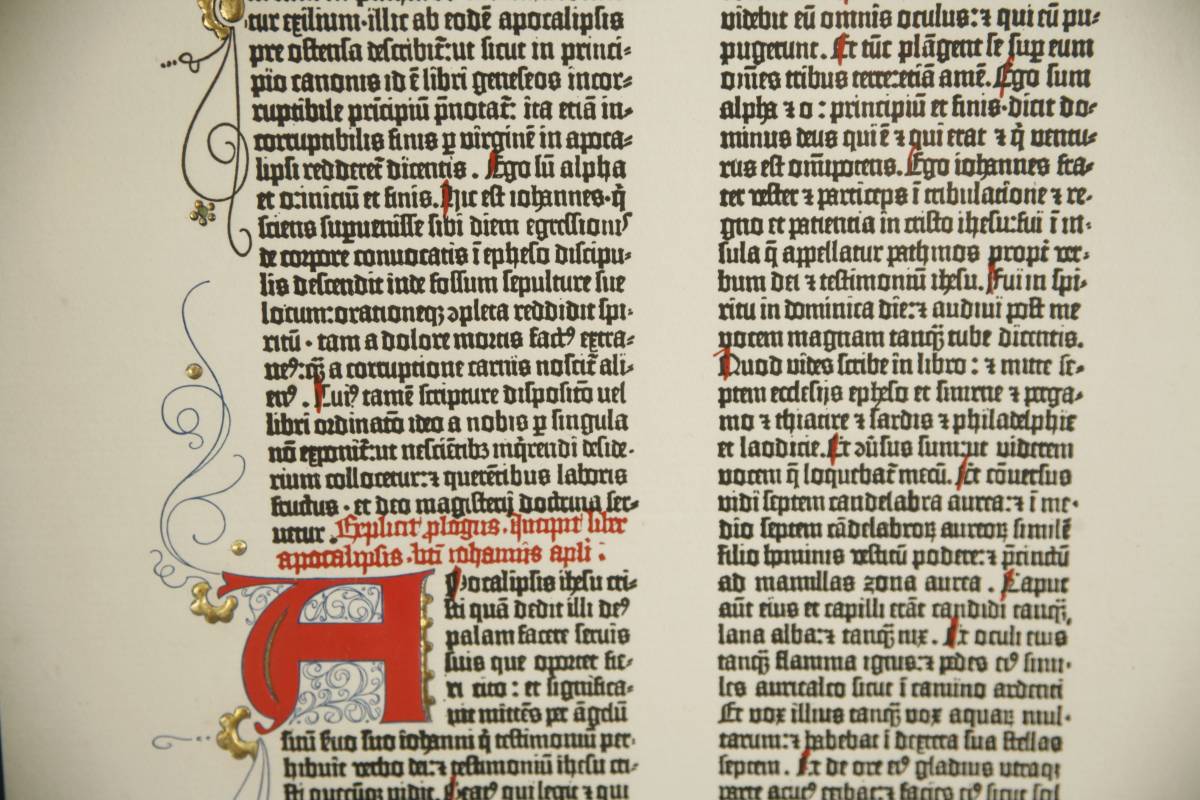 tur exilium·illic ab eodē apocalipsis
pre ostensa describit̄:ut sicut in princi⸗
pio canonis id ē libri geneseos incor⸗
ruptibile prīcipiū p̄notat̄: ita etiā in⸗
corruptibilis finis ꝑ virginē in apoca⸗
lipsi redderet̄ dicentis . Ego sū alpha
et o:iniciū et finis. Hic est iohannes·q̇
sciens suꝑuenisse sibi diem egressionis
de corpore convocatis ī epheso discipu⸗
lis descendit inde fossum sepulture sue
locum:orationeqꝫ ꝯpleta reddidit spi⸗
ritū · tam a dolore mortis factꝰ extra⸗
neꝰ:qͣꝫ a corruptione carnis noscit̄ ali⸗
enꝰ . Cuiꝰ tamē scripture disposicō vel
libri ordinatō ideo a nobis ꝑ singula
nō exponit̄:ut nescientibꝫ inq̇rendi deside⸗
rium collocetur:⁊ querētibus laboris
fructus · et deo magisterij doctrina ser⸗
vetur . Explicit ꝓlogus. Incipit liber
apocalipsis·bt̄i iohannis apli :
Apocalipsis ihesu cri⸗
sti quā dedit illi deꝰ
palam facere servis
suis que oportet fie⸗
ri cito : et significa⸗
vit mittēs per āgelū
suū servo suo iohanni q̇ testimoniū per⸗
hibuit verbo dei:⁊ testimoniū ihesu cri⸗
sti quecūqꝫ vidit. Beatꝰ qui legit ⁊ qui
videbit eū omnis oculus:⁊ qui eū pu⸗
pugerunt. Et tūc plāgent se suꝑ eum
om̄es tribus terre:etiā amē. Ego sum
alpha ⁊ o : principiū et finis·dicit do⸗
minus deus qui ē ⁊ qui erat ⁊ q̇ ventu⸗
rus est om̄ipotens. Ego iohannes fra⸗
ter vester ⁊ particeps ī tribulacione ⁊ re⸗
gno et patientia in cristo ihesu:fui ī in⸗
sula q̄ appellatur pathmos propt̄ ver⸗
bum dei ⁊ testimoniū ihesu. Fui in spi⸗
ritu in dominica die:⁊ audivi post me
vocem magnam tanqͣꝫ tube dicentis.
Quod vides scribe in libro : ⁊ mitte se⸗
ptem ecclesijs epheso et smirne ⁊ perga⸗
mo ⁊ thiatire ⁊ sardis ⁊ philadelphie
et laodicie. Et ꝯv̄sus sum:ut viderem
vocem q̄ loquebat̄ mecū. Et cōversus
vidi septem candelabra aurea:⁊ ī me⸗
dio septem cādelabroꝝ aureoꝝ similē
filio hominis vestitū podere:⁊ p̄cinctū
ad mamillas zona aurea . Caput
aūt eius et capilli erāt candidi tanqͣꝫ
lana alba:⁊ tanqͣꝫ nix . Et oculi eius
tanqͣꝫ flamma ignis:⁊ pedes eiꝰ simi⸗
les auricalco sicut ī camino ardenti
Et vox illius tanqͣꝫ vox aquaꝝ mul⸗
tarum:⁊ habebat ī dextera sua stellas
septem. Et de ore eiꝰ gladius utraqꝫ
parte acutꝰ exibat:⁊ facies eiꝰ sicut sol